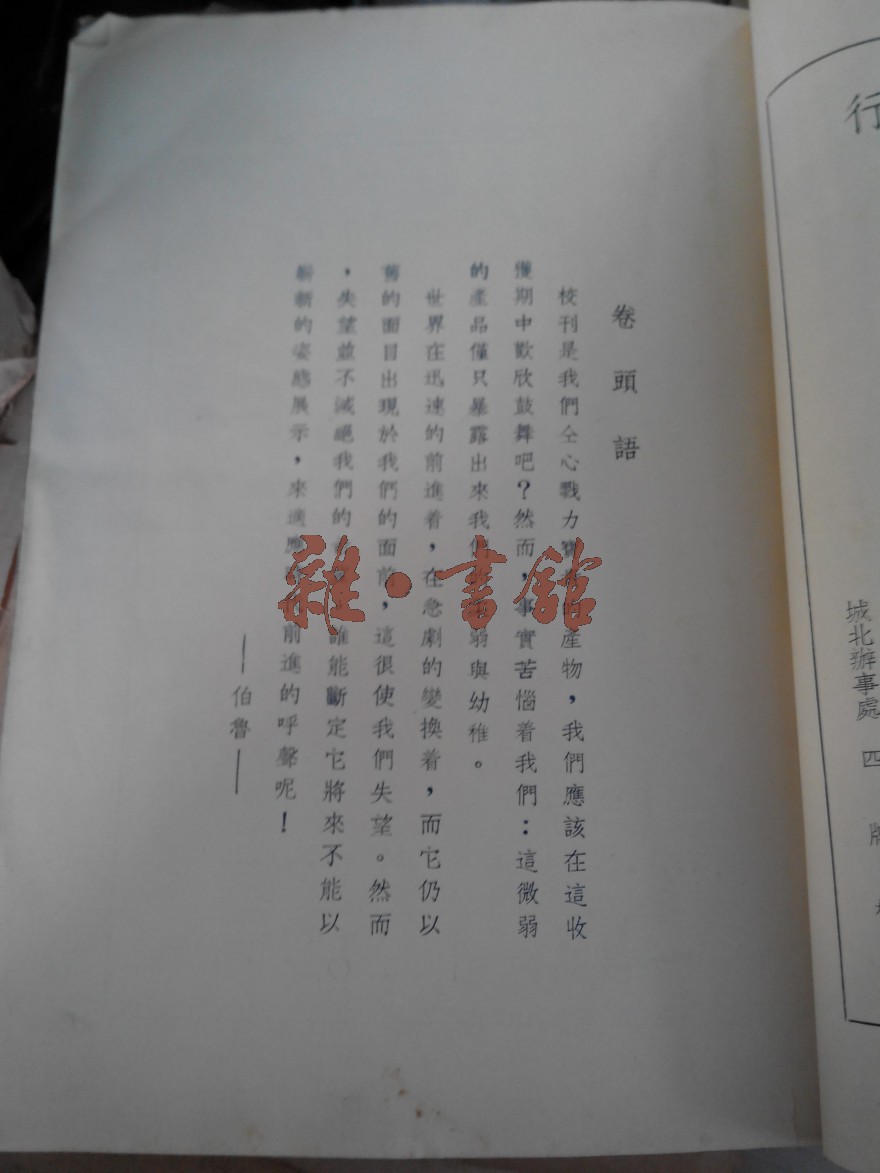 卷頭語
校刊是我們仝心戮力的產物，我們應該在這收
獲期中歡欣鼓舞吧？然而，事實苦惱着我們：這微弱
的產品僅只暴露出來我們弱與幼稚。
世界在迅速的前進着，在急劇的變換着，而它仍以
舊的面目出現於我們的面前，這很使我們失望。然而
，失望並不滅絕我們的誰能斷定它將來不能以
嶄新的姿態展示，來適應前進的呼聲呢！
——伯魯——
雜·書館
行
城北辦事處 四牌